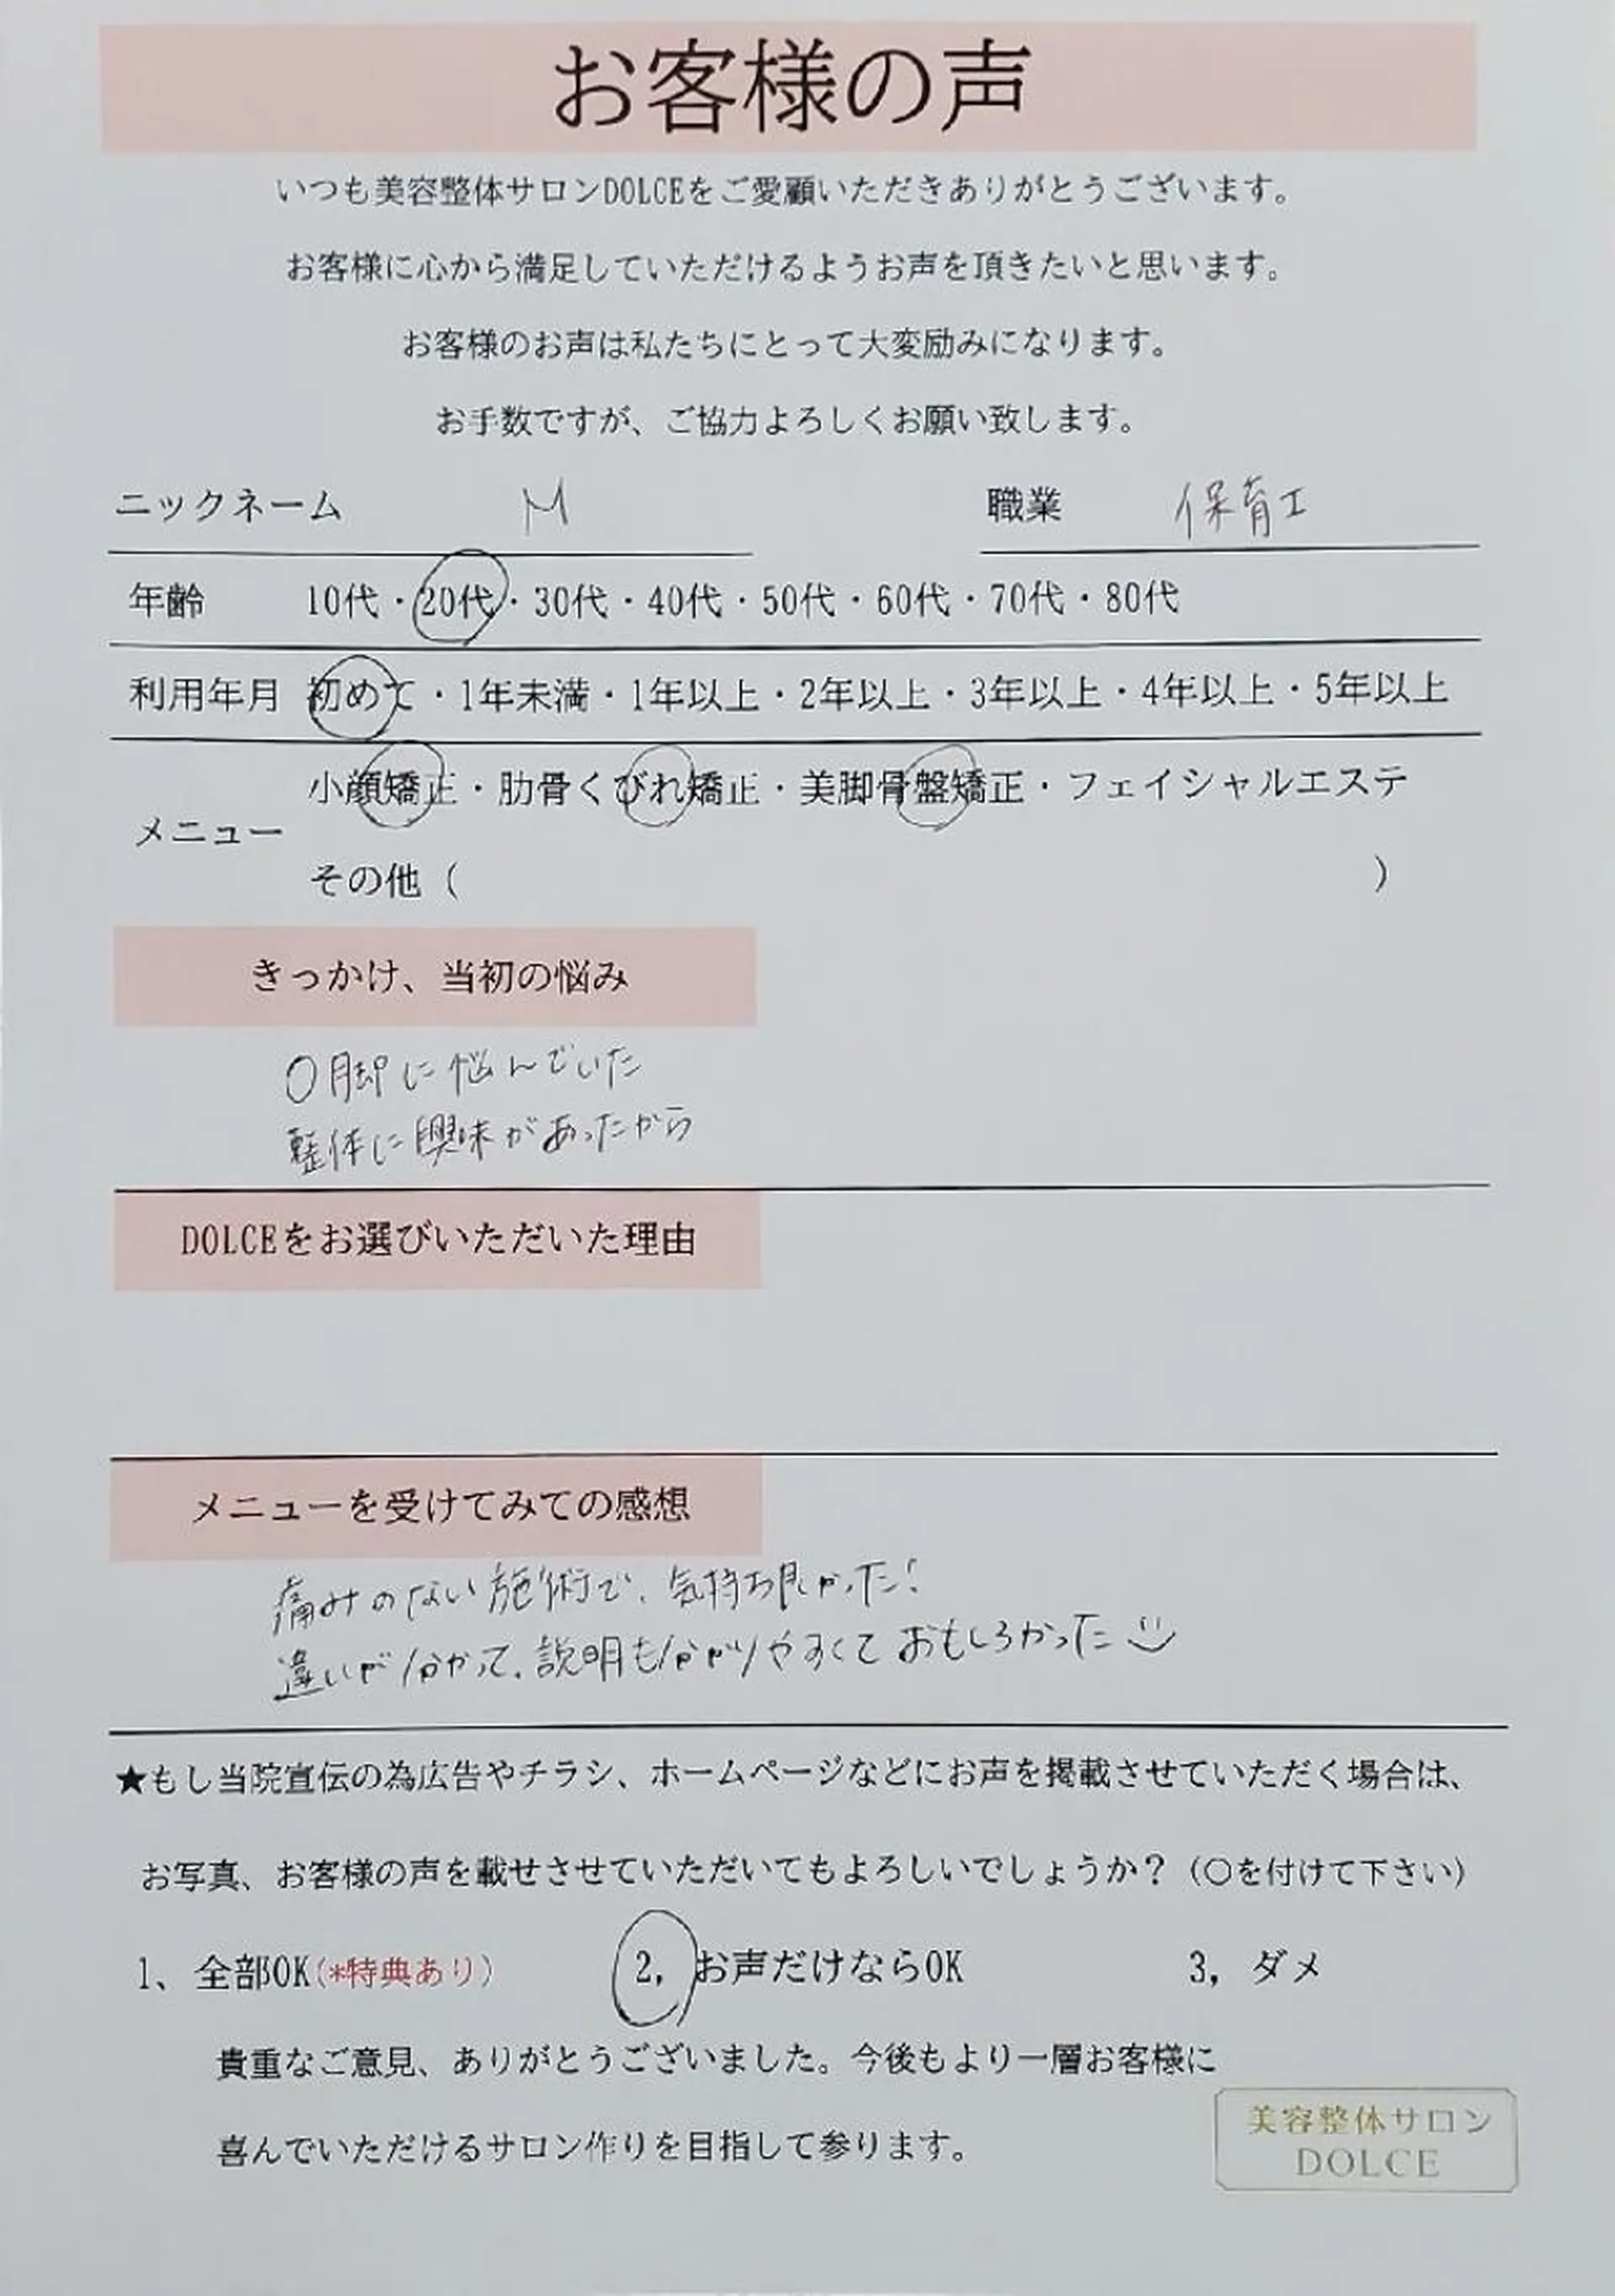 お客様の声
いつも美容整体サロンDOLCEをご愛顧いただきありがとうございます。
お客様に心から満足していただけるようお声を頂きたいと思います。
お客様のお声は私たちにとって大変励みになります。
お手数ですが、ご協力よろしくお願い致します。
ニックネーム M 職業 保育士
年齢 10代・20代・30代・40代・50代・60代・70代・80代
利用年月 初めて・1年未満・1年以上・2年以上・3年以上・4年以上・5年以上
小顔矯正・肋骨くびれ矯正・美脚骨盤矯正・フェイシャルエステ
メニュー
その他（ ）
きっかけ、当初の悩み
O脚に悩んでいた
整体に興味があったから
DOLCEをお選びいただいた理由
メニューを受けてみての感想
痛みのない施術で、気持ち良かった!
違いが分かって、説明も分かりやすくておもしろかった
★もし当院宣伝の為広告やチラシ、ホームページなどにお声を掲載させていただく場合は、
お写真、お客様の声を載せさせていただいてもよろしいでしょうか？（○を付けて下さい）
1、全部OK(*特典あり) 2,お声だけならOK 3,ダメ
貴重なご意見、ありがとうございました。今後もより一層お客様に
喜んでいただけるサロン作りを目指して参ります。
美容整体サロン
DOLCE